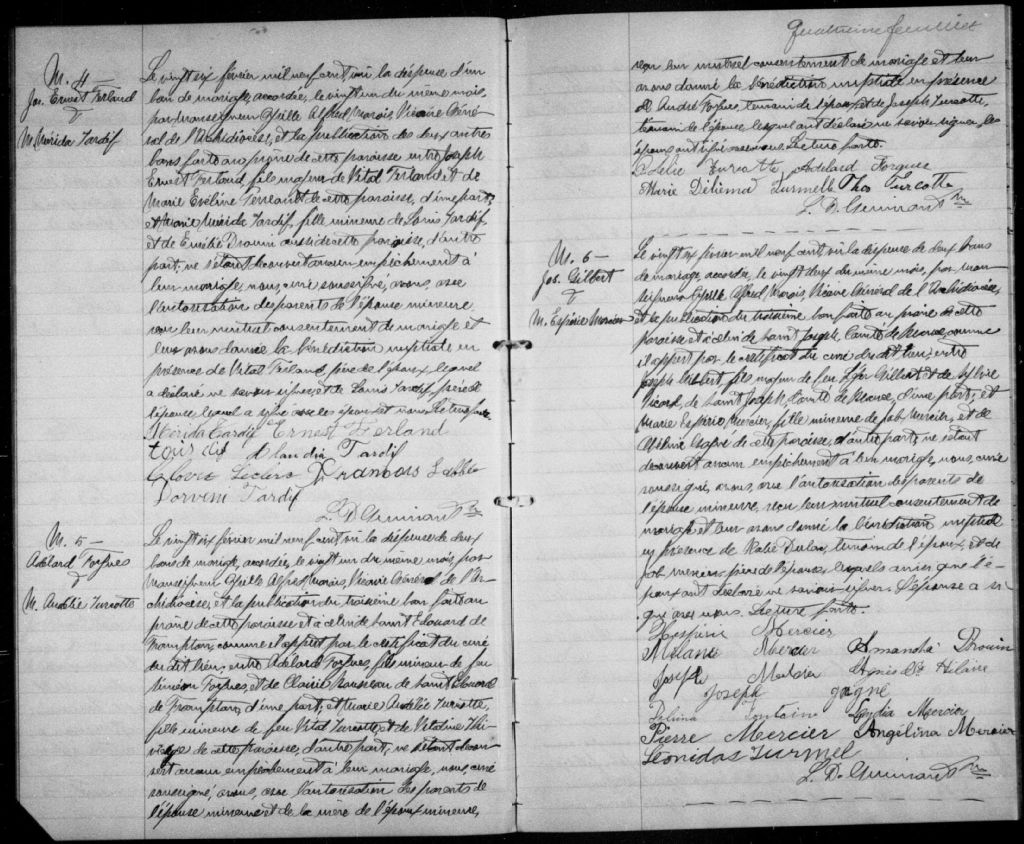 M. 4 —
Jos. Ernest Ferland
&
M. Mérida Tardif
Le vingt six février mil neuf cent un la dispense d'un
ban de mariage, accordée, le vingt un du même mois,
par Monseigneur Cyrille Alfred Marois, Vicaire Géné-
ral de l'Archidiocèse, et la publication des deux autres
bans faite au prône de cette paroisse entre Joseph
Ernest Ferland, fils majeur de Vital Ferland et de
Marie Eveline Perreault de cette paroisse, d'une part,
et Marie Mérida Tardif, fille mineure de Louis Tardif,
et de Emélie Drouin aussi de cette paroisse, d'autre
part; ne s'étant découvert aucun empêchement à
leur mariage, nous, curé soussigné, avons, avec
l'autorisation des parents de l'épouse mineure
reçu leur mutuel consentement de mariage et
leur avons donné la bénédiction nuptiale en
présence de Vital Ferland, père de l'époux, lequel
a déclaré ne savoir signer, et de Louis Tardif, père de
l'épouse lequel a signé avec les époux et nous. Lecture faite
Mérida Tardif Ernest Ferland
Louis Tardif
Clovis Leclerc François Labbé
Tardif
M. 5 —
Adélard Forgues
&
M. Aurélie Turcotte
Le vingt six février mil neuf cent un la dispense de deux
bans de mariage, accordée, le vingt un du même mois, par
Monseigneur Cyrille Alfred Marois, Vicaire Général de l'Ar-
chidiocèse, et la publication du troisième ban faite au
prône de cette paroisse et à celui de Saint Edouard de
Frampton, comme il appert par le certificat du curé
du dit lieu, entre Adélard Forgues, fils mineur de feu
Siméon Forgues, et de Claire Rousseau de Saint Edouard
de Frampton, d'une part, et Marie Aurélie Turcotte,
fille mineure de feu Vital Turcotte, et de Vitaline Thi-
vierge de cette paroisse, d'autre part, ne s'étant décou-
vert aucun empêchement à leur mariage, nous, curé
soussigné, avons, avec l'autorisation des parents de
l'épouse mineure et de la mère de l'époux mineur,
Quatrième feuillet
reçu leur mutuel consentement de mariage et leur
avons donné la bénédiction nuptiale en présence
de André Forgues, témoin de l'époux, et de Joseph Turcotte,
témoin de l'épouse lesquels ont déclaré ne savoir signer, les
époux ont signé avec nous. Lecture faite.
Turcotte Adelard Forgues
Marie Turmelle Thos Turcotte
M. 6 —
Jos. Gilbert
&
M. Exspérie Mercier
Le vingt six février mil neuf cent un la dispense de deux bans
de mariage, accordée, le vingt deux du même mois, par Mon-
seigneur Cyrille Alfred Marois, Vicaire Général de l'Archidiocèse,
et la publication du troisième ban faite au prône de cette
paroisse et à celui de Saint Joseph, Comté de Beauce, comme
il appert par le certificat du curé du dit lieu, entre
Joseph Gilbert, fils majeur de feu Gilbert et de
de Saint Joseph, Comté de Beauce, d'une part, et
Marie Mercier, fille mineure de Job Mercier, et de
de cette paroisse, d'autre part; ne s'étant
découvert aucun empêchement à leur mariage, nous, curé
soussigné, avons, avec l'autorisation des parents de
l'épouse mineure, reçu leur mutuel consentement de
mariage et leur avons donné la bénédiction nuptiale
en présence de témoin de l'époux, et de
Job Mercier père de l'épouse, lesquels ainsi que l'é-
poux ont déclaré ne savoir signer. L'épouse a si-
gné avec nous. Lecture faite.
Mercier
Mercier Amanda Drouin
Mercier Agnès St Hilaire
Joseph Gagné
Fontaine Lydia Mercier
Pierre Mercier Angelina Mercier
Léonidas Turmel